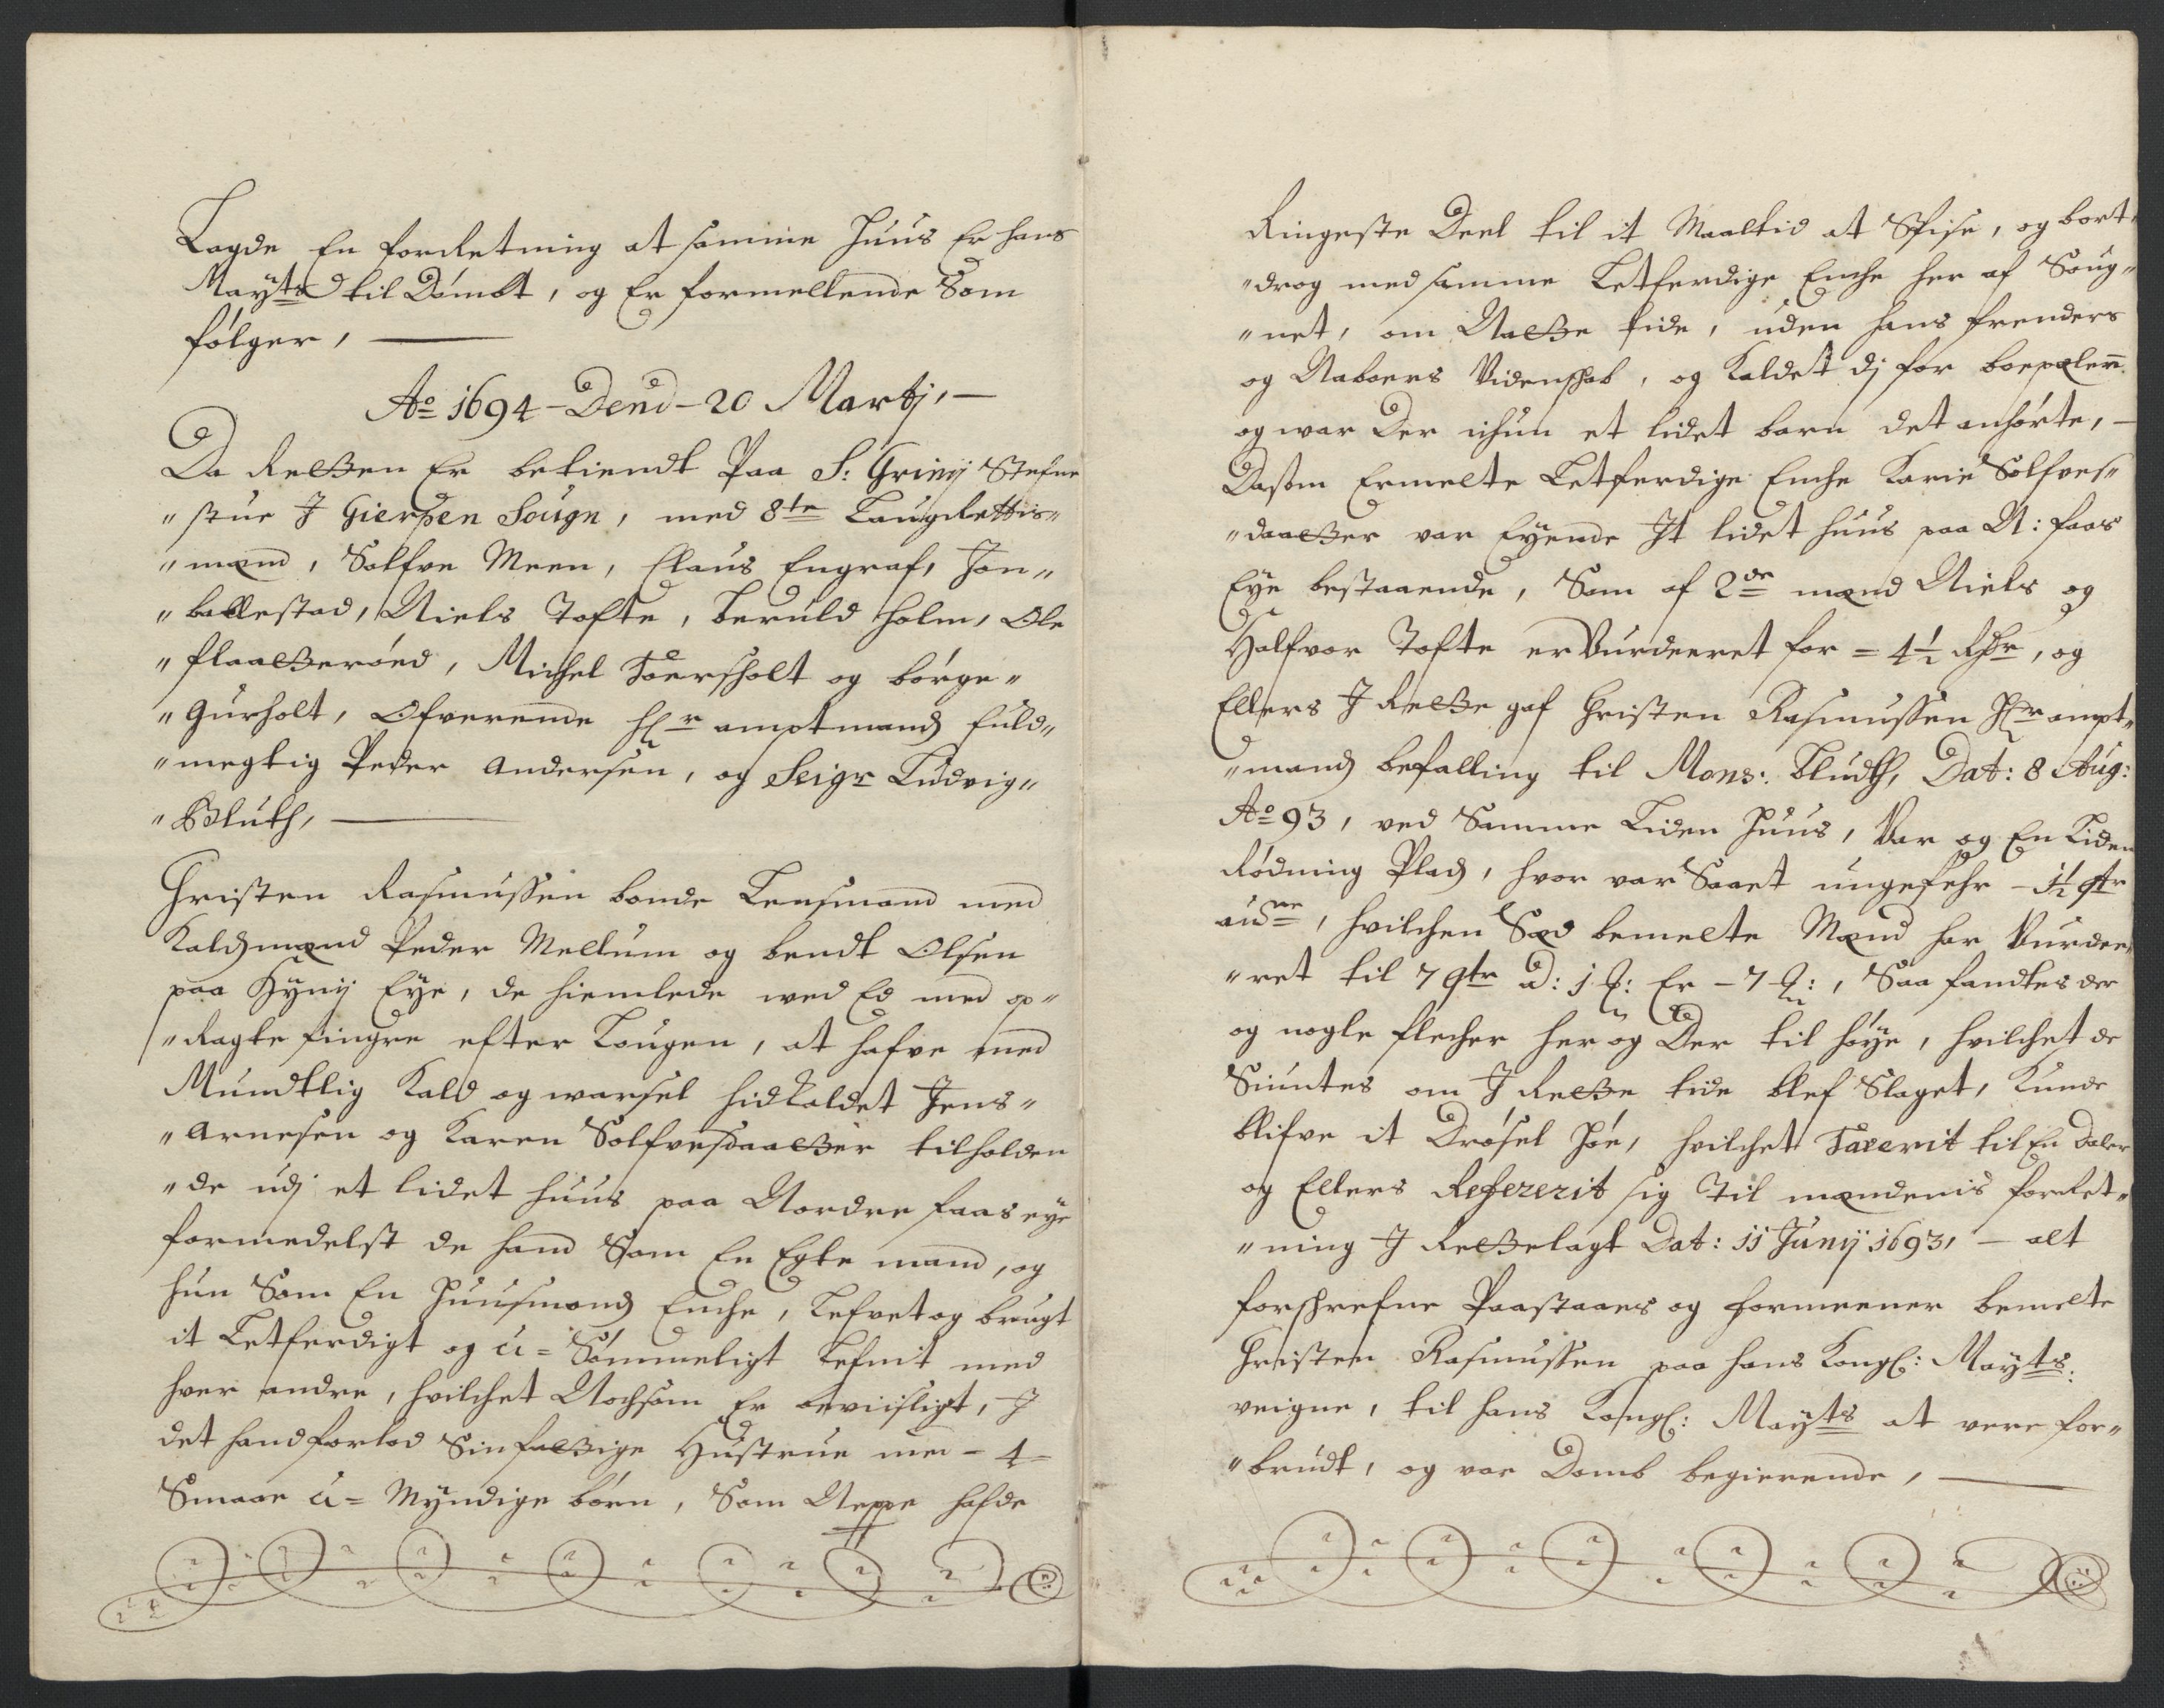 Lagde En forretning at samme Huus Er hans
Mayts til Dömbt, og Er formellende Som
fölger,
Ao 1694 - Dend - 20 Martj,
Da Retten Er betiendt Paa S: Griny Stefne
"stue J Gierpen Sougn, med 8te Laugrettis"
"mænd, Solfve Meen, Claus Engraf, Jon"
"ballestad, Niels Tofte, Beruld Holm, Ole
"flaatterönd, Michel Foersholt og börge"
"Gurholt, Ofverende Hr amptmands fuld"
"megtig Peder Andersen, og Seigr Ludvig"
"Bluth,
Christen Rasmussen bonde Lensmand med
Kaldsmænd Peder Mellum og bendt Olsen
paa Hynij Eye, de hiemlede wed Ed med op"
"Ragte fingre efter Lougen, at hafve med
Mundtlig Kald og warsel hidkaldet Jens"
"Arnesen og Karen Solfvesdaatter tilholden
"de udj et lidet huus paa Nordre faas eye
formedelst de hand Som En Egte mand, og
hun Som En Huusmands Enche, Lefvet og brugt
it Letferdigt og U= Sömmeligt Lefnit med
hver andre, hvilchet Nochsom Er beviisligt, J
det hand forlod Sin fattige Hustrue med - 4 -
Smaae U= Myndige börn, Som Neppe hafde
Ringeste Deel til it Maaltid at Spise, og bort"
"drog med samme Letferdige Enche her af Soug"
"net, om Natte tide, uden hans frenders
og Naboers Videnschab, og Kaldet dj for boepælen
og war Der ichun et lidet barn det anhörte,
Dasom Ermelte Letferdige Enche Karie Solfves"
"daatter var Eyende It lidet huus paa N: faas
Eye bestaaende, Som af 2de mænd Niels og
Halfvor Tofte er Vurdeeret for = 4½ Rdr, og
Ellers J Rette gaf Christen Rasmussen Hr ampt"
"mands befalling til Mons:. Bludth, Dat: 8 Aug:
Ao 93, ved Samme Liden Huus, Var og En Liden
Rödning Plads, hvor var Saaet ungefehr - 1½ qtr
, hvilchen Sæd bemelte Mænd har Vurdee"
"ret til 7 qtr a: 1 Er - 7 , Saa fandtes der
og nogle flecher her og Der til höye, hvilchet de
Siuntes om J Rette tide blef Slaget, Kunde
blifve it Dröfel Höe, hvilchet Taxerit til En Daler
og Ellers Refererit sig Til mændenis forret"
"ning J Rettelagt Dat: 11 Junij 1693, - alt
forschrefne Paastaaer og formeener bemelte
Christen Rasmussen paa hans Kongl: Mayts:
veigne, til hans Kongl: Mayts at vere for"
"brudt, og var Domb begierende,